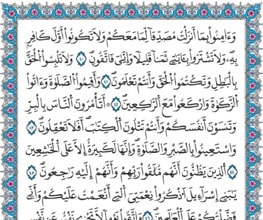 وَءَامِنُوا۟ بِمَآ أَنزَلْتُ مُصَدِّقًا لِّمَا مَعَكُمْ وَلَا تَكُونُوٓا۟ أَوَّلَ كَافِرٍۭ
بِهِۦ وَلَا تَشْتَرُوا۟ بِـَٔايَـٰتِى ثَمَنًا قَلِيلًا وَإِيَّـٰىَ فَٱتَّقُونِ ۝ وَلَا تَلْبِسُوا۟ ٱلْحَقَّ
بِٱلْبَـٰطِلِ وَتَكْتُمُوا۟ ٱلْحَقَّ وَأَنتُمْ تَعْلَمُونَ ۝ وَأَقِيمُوا۟ ٱلصَّلَوٰةَ وَءَاتُوا۟
ٱلزَّكَوٰةَ وَٱرْكَعُوا۟ مَعَ ٱلرَّٰكِعِينَ ۝ أَتَأْمُرُونَ ٱلنَّاسَ بِٱلْبِرِّ
وَتَنسَوْنَ أَنفُسَكُمْ وَأَنتُمْ تَتْلُونَ ٱلْكِتَـٰبَ أَفَلَا تَعْقِلُونَ ۝
وَٱسْتَعِينُوا۟ بِٱلصَّبْرِ وَٱلصَّلَوٰةِ وَإِنَّهَا لَكَبِيرَةٌ إِلَّا عَلَى ٱلْخَـٰشِعِينَ
۝ ٱلَّذِينَ يَظُنُّونَ أَنَّهُم مُّلَـٰقُوا۟ رَبِّهِمْ وَأَنَّهُمْ إِلَيْهِ رَٰجِعُونَ ۝
يَـٰبَنِىٓ إِسْرَٰٓءِيلَ ٱذْكُرُوا۟ نِعْمَتِىَ ٱلَّتِىٓ أَنْعَمْتُ عَلَيْكُمْ وَأَنِّى
فَضَّلْتُكُمْ عَلَى ٱلْعَـٰلَمِينَ ۝ وَٱتَّقُوا۟ يَوْمًا لَّا تَجْزِى نَفْسٌ عَن نَّفْسٍ